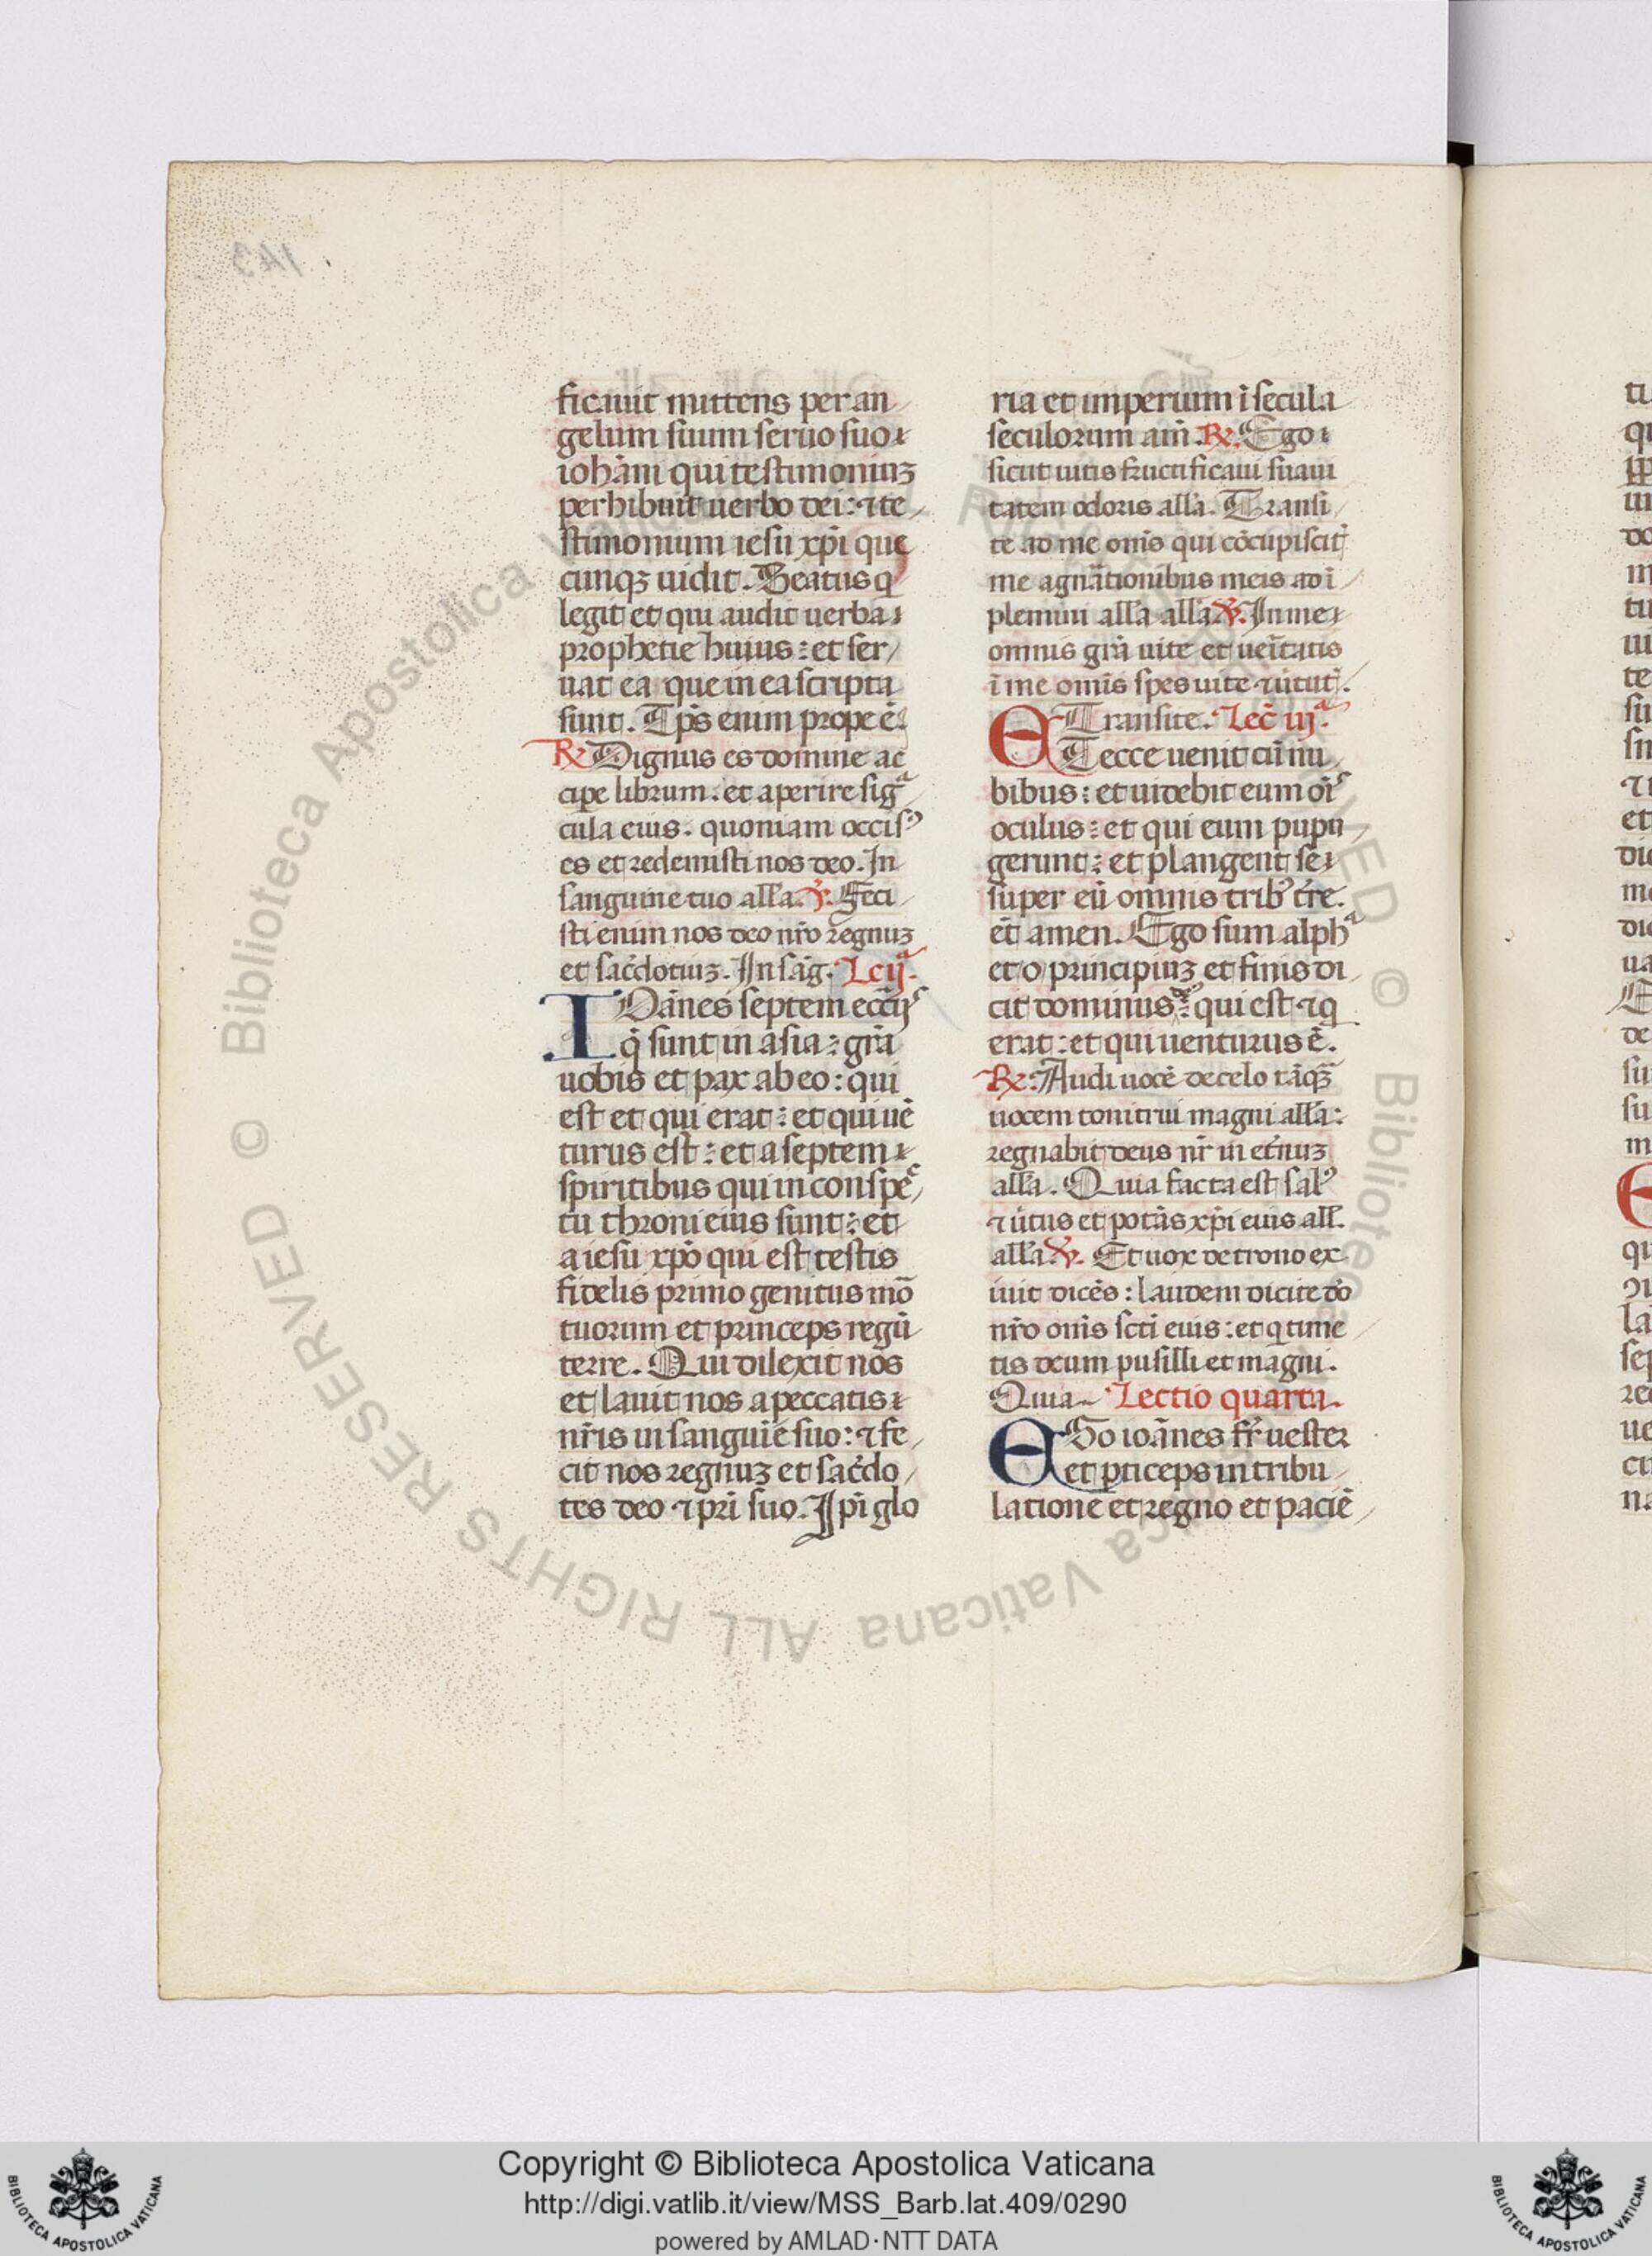 ficauit mittens per an
gelum suum seruo suo
iohãni qui testimoniuʒ
perhibuit uerbo dei: ⁊ te
stimonium iesu xp̃i que
cunqʒ uidit. Beatus q
legit et qui audit uerba
prophetie huius: et ser
uat ea que in ea scripta
sunt. Tp̃s enim prope ẽ.
℟ Dignus es domine ac
cipe librum. et aperire sigᵃ
cula eius. quoniam occisꝰ
es et redemisti nos deo. In
sanguine tuo all'a. ℣. Feci
sti enim nos deo nr̃o regnuʒ
et sac̃dotiuʒ. In sãg. Lc̃ ijᵃ.
IOãnes septem eccĩjs
q̃ sunt in asia: grã
uobis et pax ab eo: qui
est et qui erat: et qui uẽ
turus est: et a septem
spiritibus qui in conspec
tu throni eius sunt: et
a iesu xp̃o qui est testis
fidelis primo genitus mõ
tuorum et princeps regũ
terre. Qui dilexit nos
et lauit nos a peccatis
nr̃is in sanguiẽ suo: ⁊ fe
cit nos regnuʒ et sac̃do
tes deo ⁊ pr̃i suo. Ip̃i glo
ria et imperium ĩ secula
seculorum am̃. ℟. Ego
sicut uitis fructificaui suaui
tatem odoris all'a. Transi
te ad me om̃s qui cõcupiscit̃
me a gnãtionibus meis adĩ
plemini all'a all'a ℣. In me
omnis grã uite et uer̃tatis
ĩ me omis spes uite ⁊ ũtut̃.
Transite. Lec̃ iijᵃ.
ET ecce uenit cũ nu
bibus: et uidebit eum oĩs
oculus: et qui eum pupu
gerunt: et plangent se
super eũ omnis tribꝰ t̃re.
ẽt amen. Ego sum alphᵃ
et o principiuʒ et finis di
cit dominus deꝰ: qui est ⁊ q
erat: et qui uenturus ẽ.
℟. Audi uocẽ de celo tãqʒ
uocem tonitrui magni all'a:
regnabit deus nr̃ in et̃nuʒ
all'a. Quia facta est salꝰ
⁊ ũtus et potãs xp̃i eius all'.
all'a ℣. Et uox de trono ex
iuit dicẽs: laudem dicite dõ
nr̃o om̃s sc̃ti eius: et q time
tis deum pusilli et magni.
Quia Lectio quarta.
EGo ioãnes fr̃ uester
et pticeps in tribu
latione et regno et paciẽ
Copyright © Biblioteca Apostolica Vaticana
http://digi.vatlib.it/view/MSS_Barb.lat.409/0290
powered by AMLAD·NTT DATA